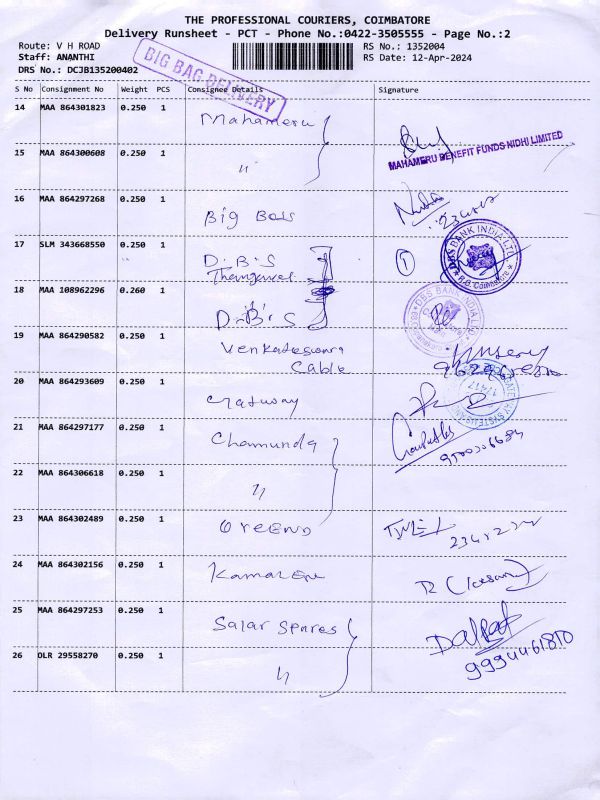 THE PROFESSIONAL COURIERS, COIMBATORE
Delivery Runsheet - PCT - Phone No.:0422-3505555 - Page No.:2
Route: V H ROAD
RS No.: 1352004
Staff: ANANTHI
RS Date: 12-Apr-2024
DRS No.: DCJB135200402
BIG BAG DELIVERY
S No Consignment No Weight PCS Consignee Details Signature
14 MAA 864301823 0.250 1 Mahameru
MAHAMERU BENEFIT FUNDS NIDHI LIMITED
15 MAA 864300608 0.250 1 "
16 MAA 864297268 0.250 1 Big Bas
17 SLM 343668550 0.250 1 D.B.S
Thangavel
1
DBS BANK INDIA LTD
R.O. Coimbatore
18 MAA 108962296 0.260 1 D.B.S
DBS BANK INDIA LTD
19 MAA 864290582 0.250 1 Venkateswara
Cable
20 MAA 864293609 0.250 1
17417
21 MAA 864297177 0.250 1 Chamunda
22 MAA 864306618 0.250 1 "
23 MAA 864302489 0.250 1 Greens
24 MAA 864302156 0.250 1
25 MAA 864297253 0.250 1 Salar Spares
Dalpat
9994461810
26 DLR 29558270 0.250 1 "